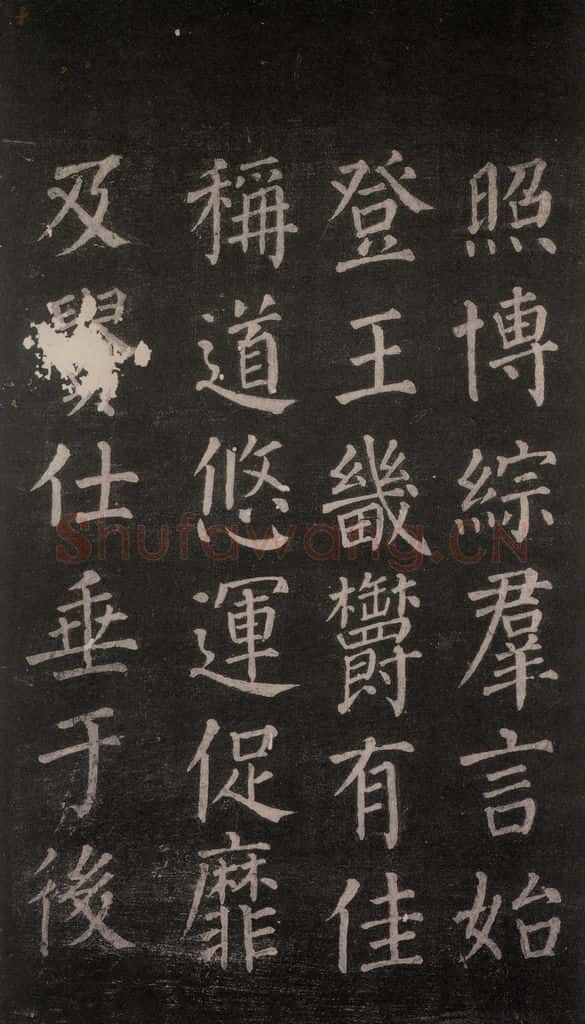 照博綜羣言始
登王畿欝有佳
稱道悠運促靡
及仕垂于後
Shufawang.CN